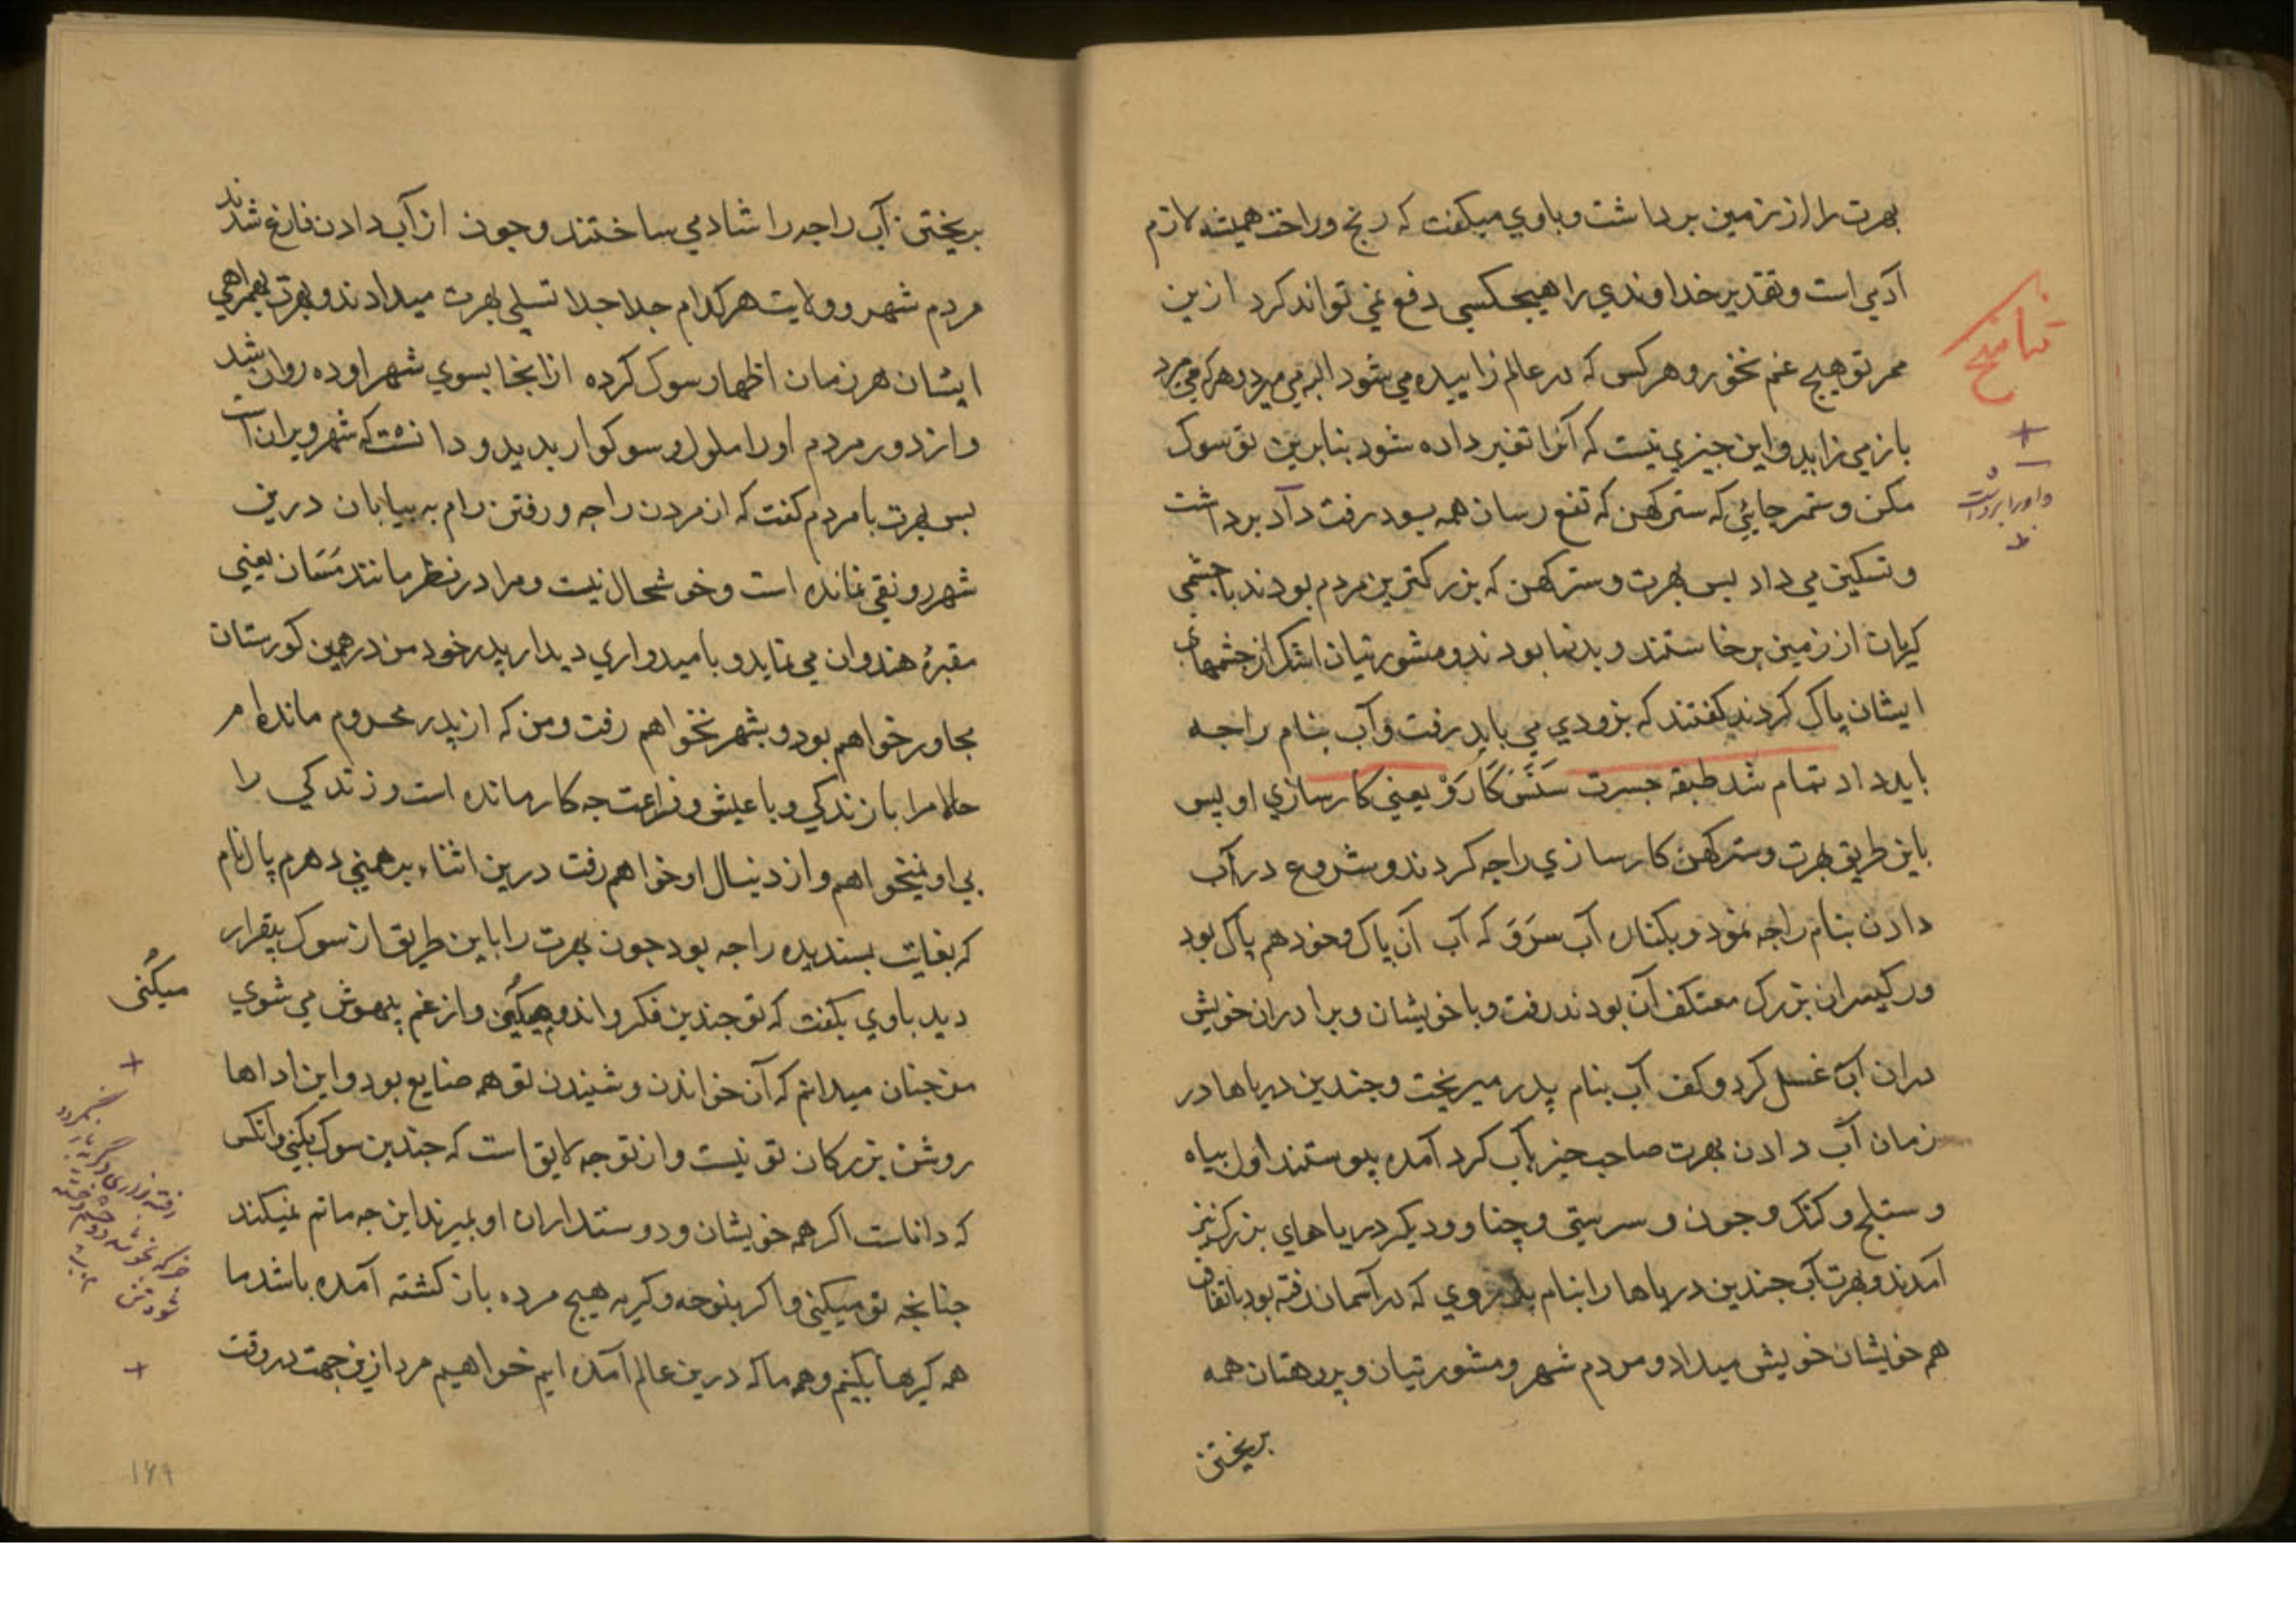 بهرت را از زمین برداشت و باوي میکفت که رنج و راحت همیشه لازم
آدمي است و تقدیر خداوندي را هیچکسي دفع نمي تواند کرد ازین
ممر تو هیچ غم نخور و هر کس که در عالم زاییده مي شود البه مي میرد و هر که مي میرد
باز مي زاید و این جیزي نیست که آنرا تغیر داده شود بنابرین تو سوک
مکن و سمر جائي که سترکهن که نفع رسان همه بود رفت و آد برداشت
و تسکین مي داد بس بهرت و سترکهن که بزرکترین مردم بودند با جشمي
کریان از زمین برخاستند و بدنما بودند و مشورتیان اشک از جشمهاي
ایشان پاک کردند کفتند که بزودي مي باید رفت و آب بنام راجه
باید داد تمام شد طبقه جسرت سَنسَکَارَوْ یعني کارسازي او پس
باین طریق بهرت و سترکهن کارسازي راجه کردند و شروع در آب
دادن بنام راجه نمود و بکناره آب سَرَوَ که آب آن پاک و خود هم پاک بود
و رکیسران بزرک معتکف آن بودند رفت و با خویشان و برادران خویش
دران آب غسل کرد و کف آب بنام پدر میریخت و جندین دریاها در
زمان آب دادن بهرت صاحب جیز بآب کرد آمده پیوستند اول بیاه
و ستلج و کنک و جون و سرستي و چناو و دیکر دریاهاي بزرک نیز
آمدند و بهرت آب جندین دریاها را بنام پدر بزوي که در آسمان رفته بود باتفاق
هم خویشان خویش میداد و مردم شهر و مشورتیان و پروهتان همه
بریختن
تناسخ
+
و او را برداشت
ظ
بریختن آب راجه را شاد مي ساختند و جون از آب دادن فارغ شدند
مردم شهر و ولایت هر کدام جدا جدا تسلي بهرت میدادند و بهرت بهمراهي
ایشان هر زمان اظهار سوک کرده ازانجا بسوي شهر اوده روان شد
و از دور مردم او را ملول و سوکوار بدید و دانست که شهر ویران است
بس بهرت با مردم کفت که از مردن راجه و رفتن رام به بیابان درین
شهر رونقي نمانده است و خوشحال نیست و مرا در نظر مانند مَسَان یعني
مقبرهٔ هندوان مي نماید و بامیدواري دیدار پدر خود من در همین کورستان
مجاور خواهم بود و بشهر نخواهم رفت و من که از پدر محروم مانده ام
حالا مرا با زندکي و با عیش و فراعت جه کار مانده است و زندکي را
بي او نمیخواهم و از دنبال او خواهم رفت درین اثناء برهمني دهرم پال نام
که بغایت بسندیده راجه بود جون بهرت را باین طریق از سوک بیقرار
دید باوي بکفت که تو جندین فکر و اندوه میکني و از غم بیهوش مي شوي
من جنان میدانم که آن خواندن و شنیدن تو همه ضایع بود و این اداها
روش بزرکان تو نیست و از تو جه لایق است که جندین سوک بکني و انکس
که داناست اکر همه خویشان و دوستداران او بمیرند این جه ماتم نمیکند
جنانجه تو میکني و اکر بنوحه و کریه هیج مرده باز کشته آمده باشد ما
همه کریها بکنیم و همه ما که درین عالم آمده ایم خواهیم مرد ازین جهت در وقت
میکُني
+
+
۱۴۹